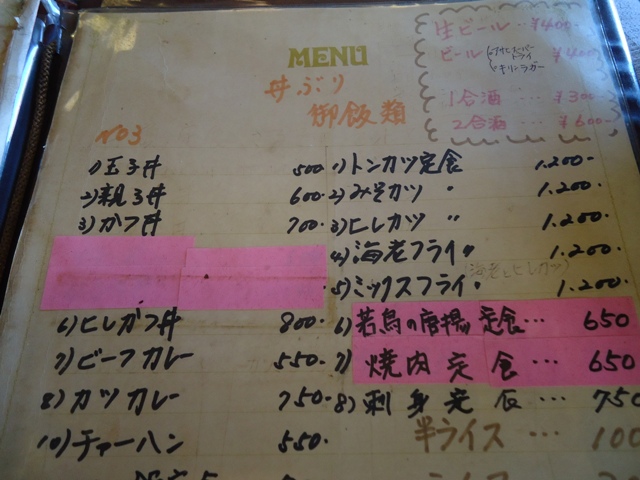 MENU
丼ぶり
御飯類
No3
生ビール‥¥400-
ビール アサヒスーパードライ キリンラガー ¥400
1合酒 … ¥300
2合酒 … ¥600
1)玉子丼 500
2)親子丼 600-
3)かつ丼 700-
6)ヒレかつ丼 800-
7)ビーフカレー 550-
8)カツカレー 750-
10)チャーハン 550-
1)トンカツ定食 1.200-
2)みそカツ 〃 1.200-
3)ヒレカツ 〃 1.200-
4)海老フライ〃 1.200-
(海老とヒレカツ)
5)ミックスフライ〃 1.200-
6)若鳥の唐揚定食… 650
7)焼肉定食… 650
8)刺身定食 750
半ライス … 100